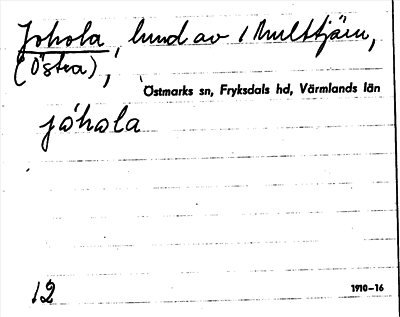 Johola, lund av / Multtjärn,
(Östra),
Östmarks sn, Fryksdals hd, Värmlands län
jóhola
12
1910-16